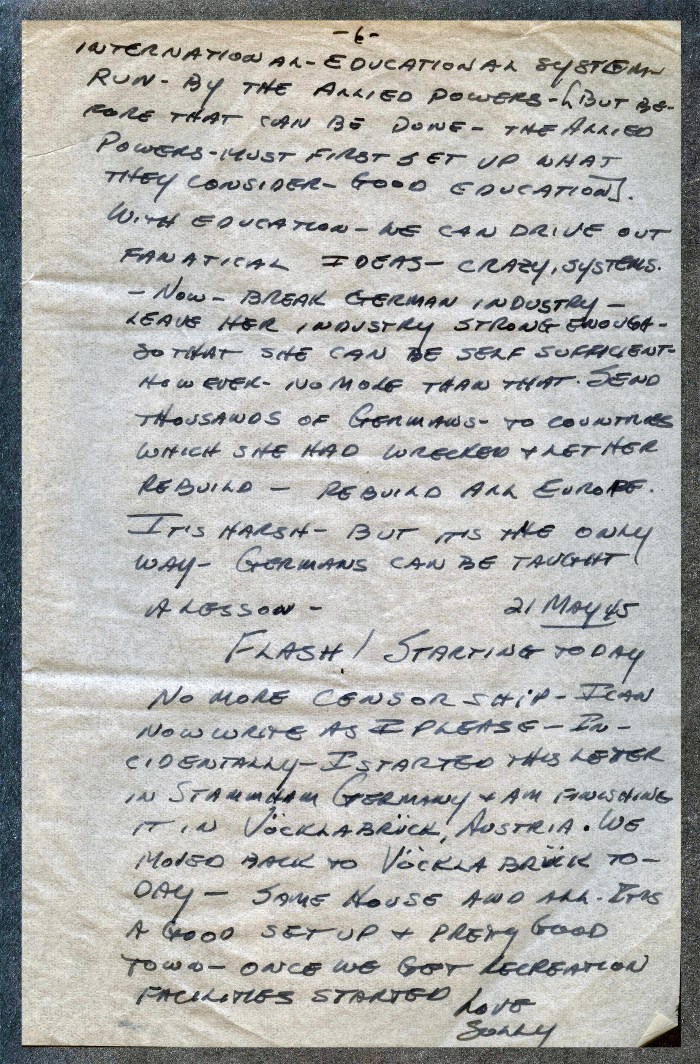 -6-
INTERNATIONAL-EDUCATIONAL SYSTEM-
RUN- BY THE ALLIED POWERS-[BUT BE-
FORE THAT CAN BE DONE- THE ALLIED
POWERS-MUST FIRST SET UP WHAT
THEY CONSIDER- GOOD EDUCATION].
WITH EDUCATION- WE CAN DRIVE OUT
FANATICAL IDEAS- CRAZY, SYSTEMS.
-NOW- BREAK GERMAN INDUSTRY-
LEAVE HER INDUSTRY STRONG ENOUGH-
SO THAT SHE CAN BE SELF SUFFICIENT-
HOWEVER- NO MORE THAN THAT. SEND
THOUSANDS OF GERMANS- TO COUNTRIES
WHICH SHE HAD WRECKED & LET HER
REBUILD - REBUILD ALL EUROPE.
IT'S HARSH- BUT IT'S THE ONLY
WAY- GERMANS CAN BE TAUGHT
A LESSON-
21 MAY 45
FLASH! STARTING TODAY
NO MORE CENSORSHIP- I CAN
NOW WRITE AS I PLEASE- IN-
CIDENTALLY- I STARTED THIS LETER
IN STAMMHAM GERMANY & AM FINISHING
IT IN VÖCKLABRÜCK, AUSTRIA. WE
MOVED BACK TO VÖCKLABRÜCK TO-
DAY- SAME HOUSE AND ALL. IT'S
A GOOD SET UP & PRETY GOOD
TOWN- ONCE WE GET RECREATION
FACILITIES STARTED
LOVE
SOLLY